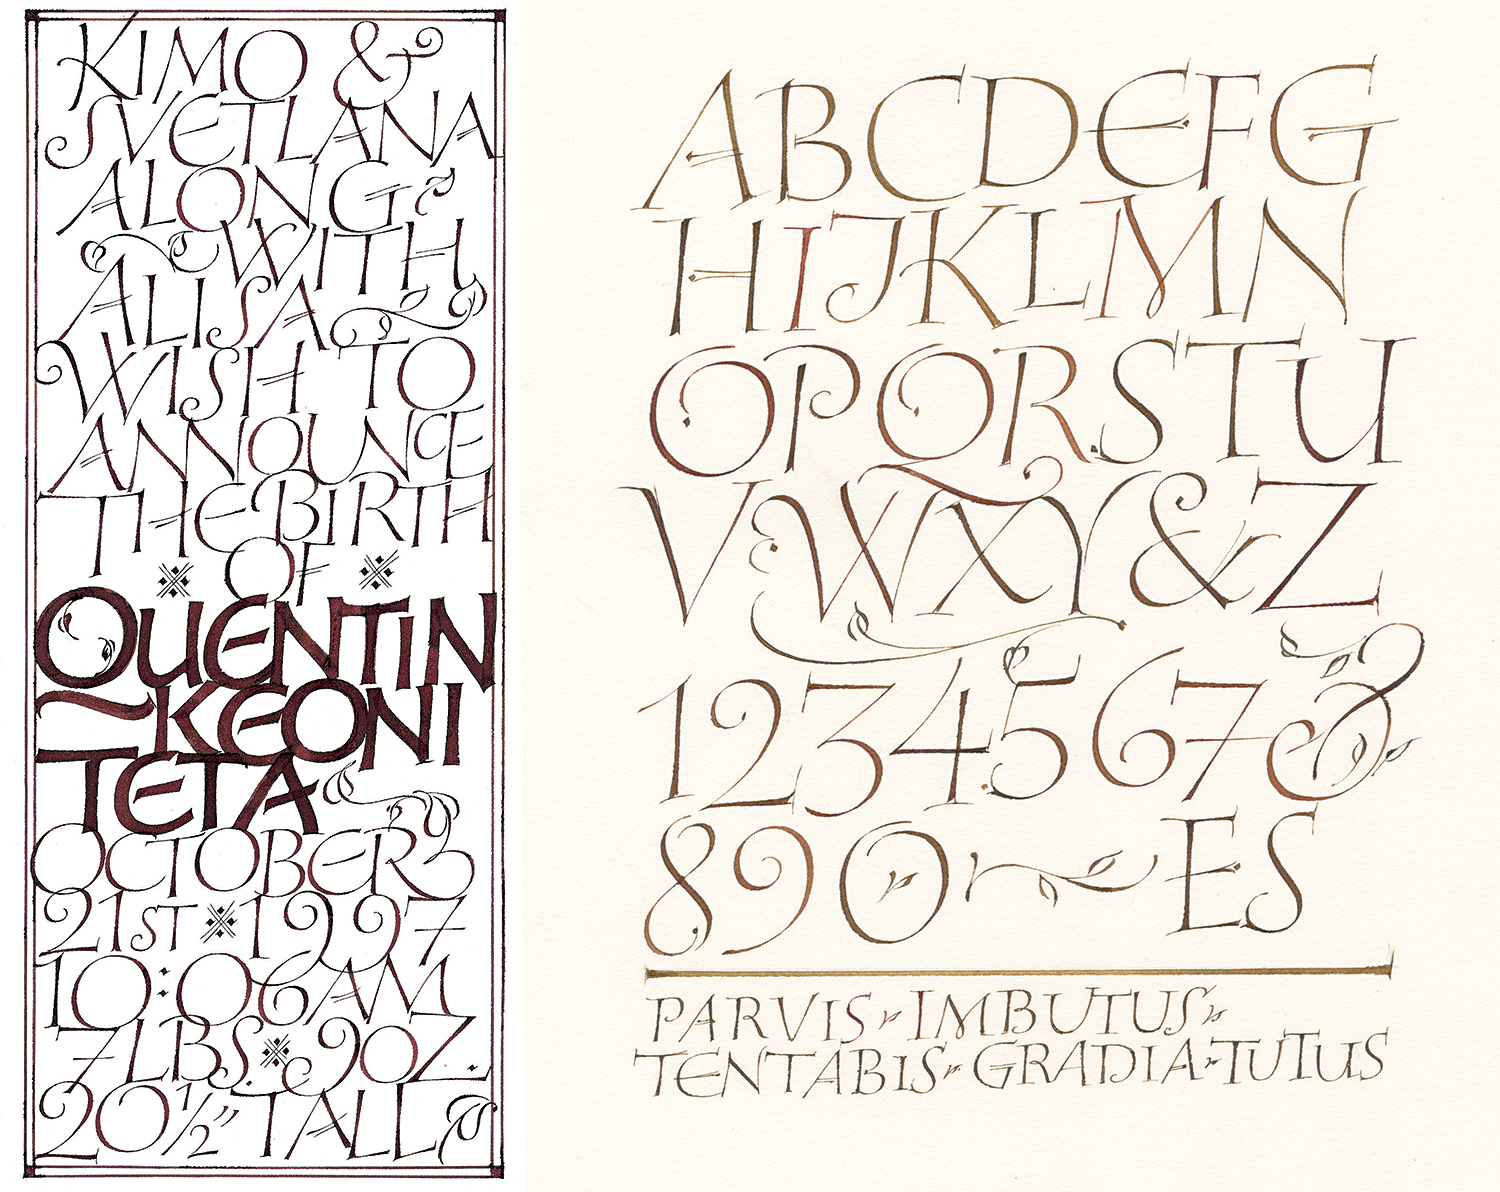 KIMO &
SVETLANA
ALONG
WITH
ALISA
WISH TO
ANNOUNCE
THE BIRTH
OF
QUENTIN
KEONI
TETA
OCTOBER
21ST 1997
10:06AM
7LBS. 9OZ.
20½" TALL
ABCDEFG
HIJKLMN
OPQRSTU
VWXY&Z
1234567&
890 ES
PARVIS IMBUTUS
TENTABIS GRADIA TUTUS